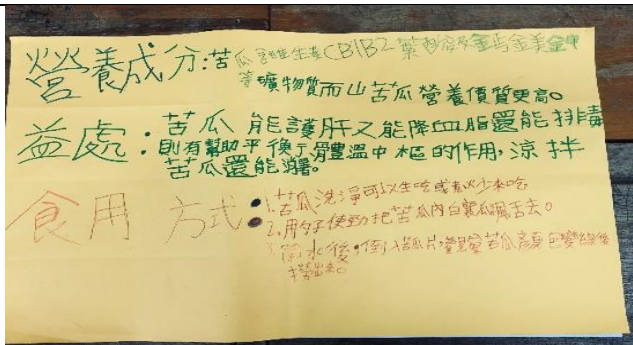 營養成分:苦瓜含維生素CB1B2葉酸 鈣金美金甲
等礦物質而山苦瓜營養價質更高。
益處:苦瓜能護肝又能降血脂還能排毒
則有幫助平衡 體溫中樞的作用,涼拌
苦瓜還能消暑。
食用方式:1.苦瓜洗淨可以生吃或者炒來吃
2.用勺子使勁把苦瓜內白 刮去。
3. 水後,倒入苦瓜片, 苦瓜顏色變綠後
撈出來。